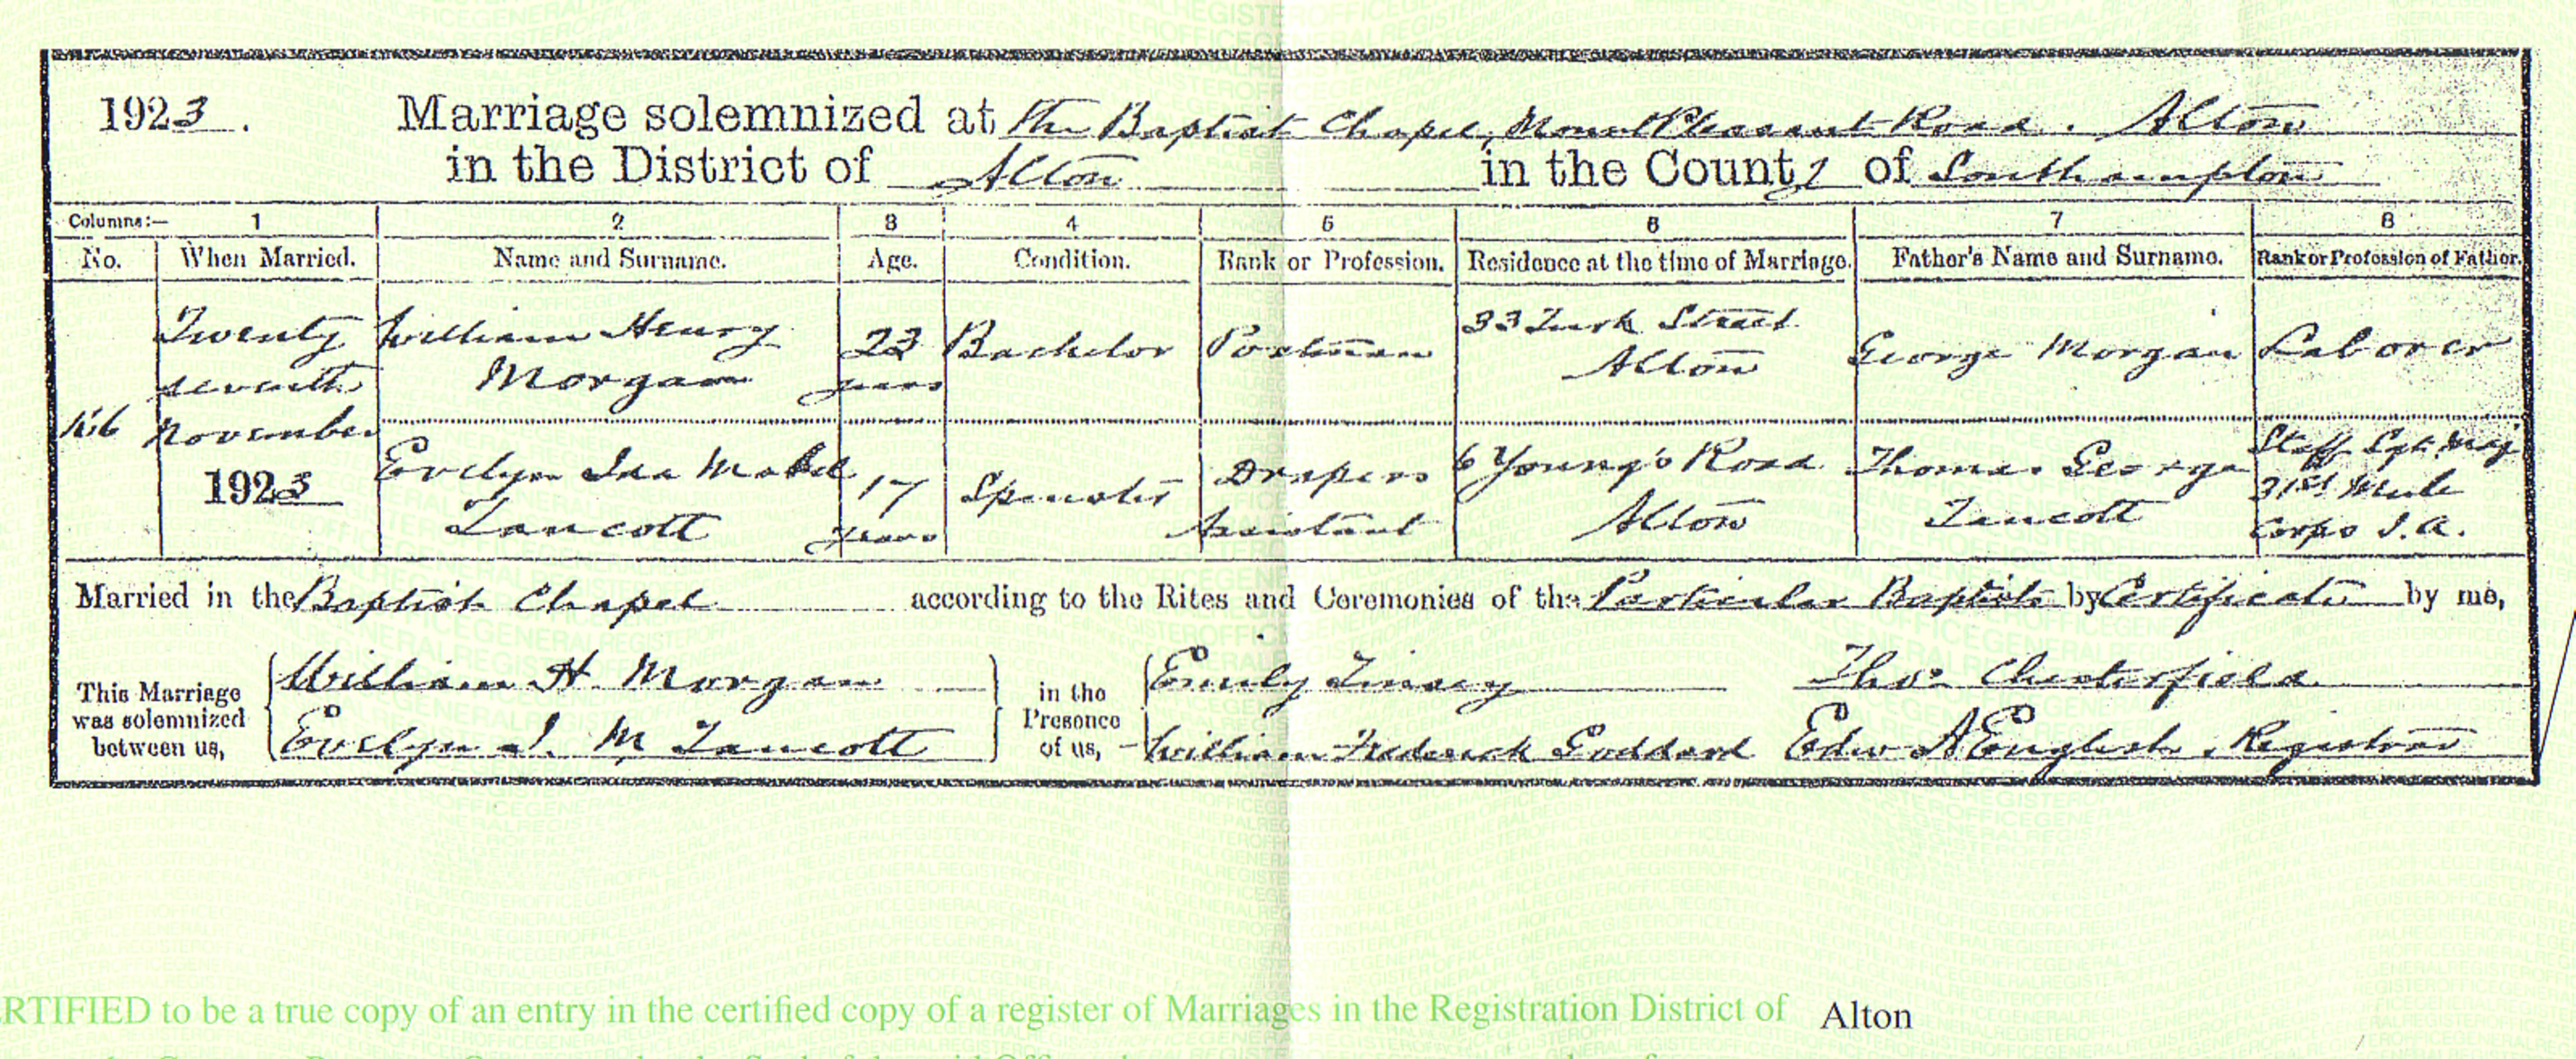 1923. Marriage solemnized at The Baptist Chapel, Mount Pleasant Road. Alton
in the District of Alton in the County of Southampton
Columns:— 1 2 3 4 5 6 7 8
No. When Married. Name and Surname. Age. Condition. Rank or Profession. Residence at the time of Marriage. Father's Name and Surname. Rank or Profession of Father.
Twenty William Henry 23 Bachelor Postman 33 Turk Street George Morgan Laborer
seventh Morgan years Alton
November
1923 Evelyn Ida Mabel 17 Spinster Drapers 6 Young's Road Thomas George Staff Sgt Maj
years Assistant Alton 31st Mule
Corps I.A.
Married in the Baptist Chapel according to the Rites and Ceremonies of the Particular Baptists by Certificate by me,
This Marriage was solemnized between us, William H. Morgan in the Presence of us, Emily Thos. Chesterfield
Evelyn I. M. William Frederick Goddard Edw A English. Registrar
CERTIFIED to be a true copy of an entry in the certified copy of a register of Marriages in the Registration District of Alton